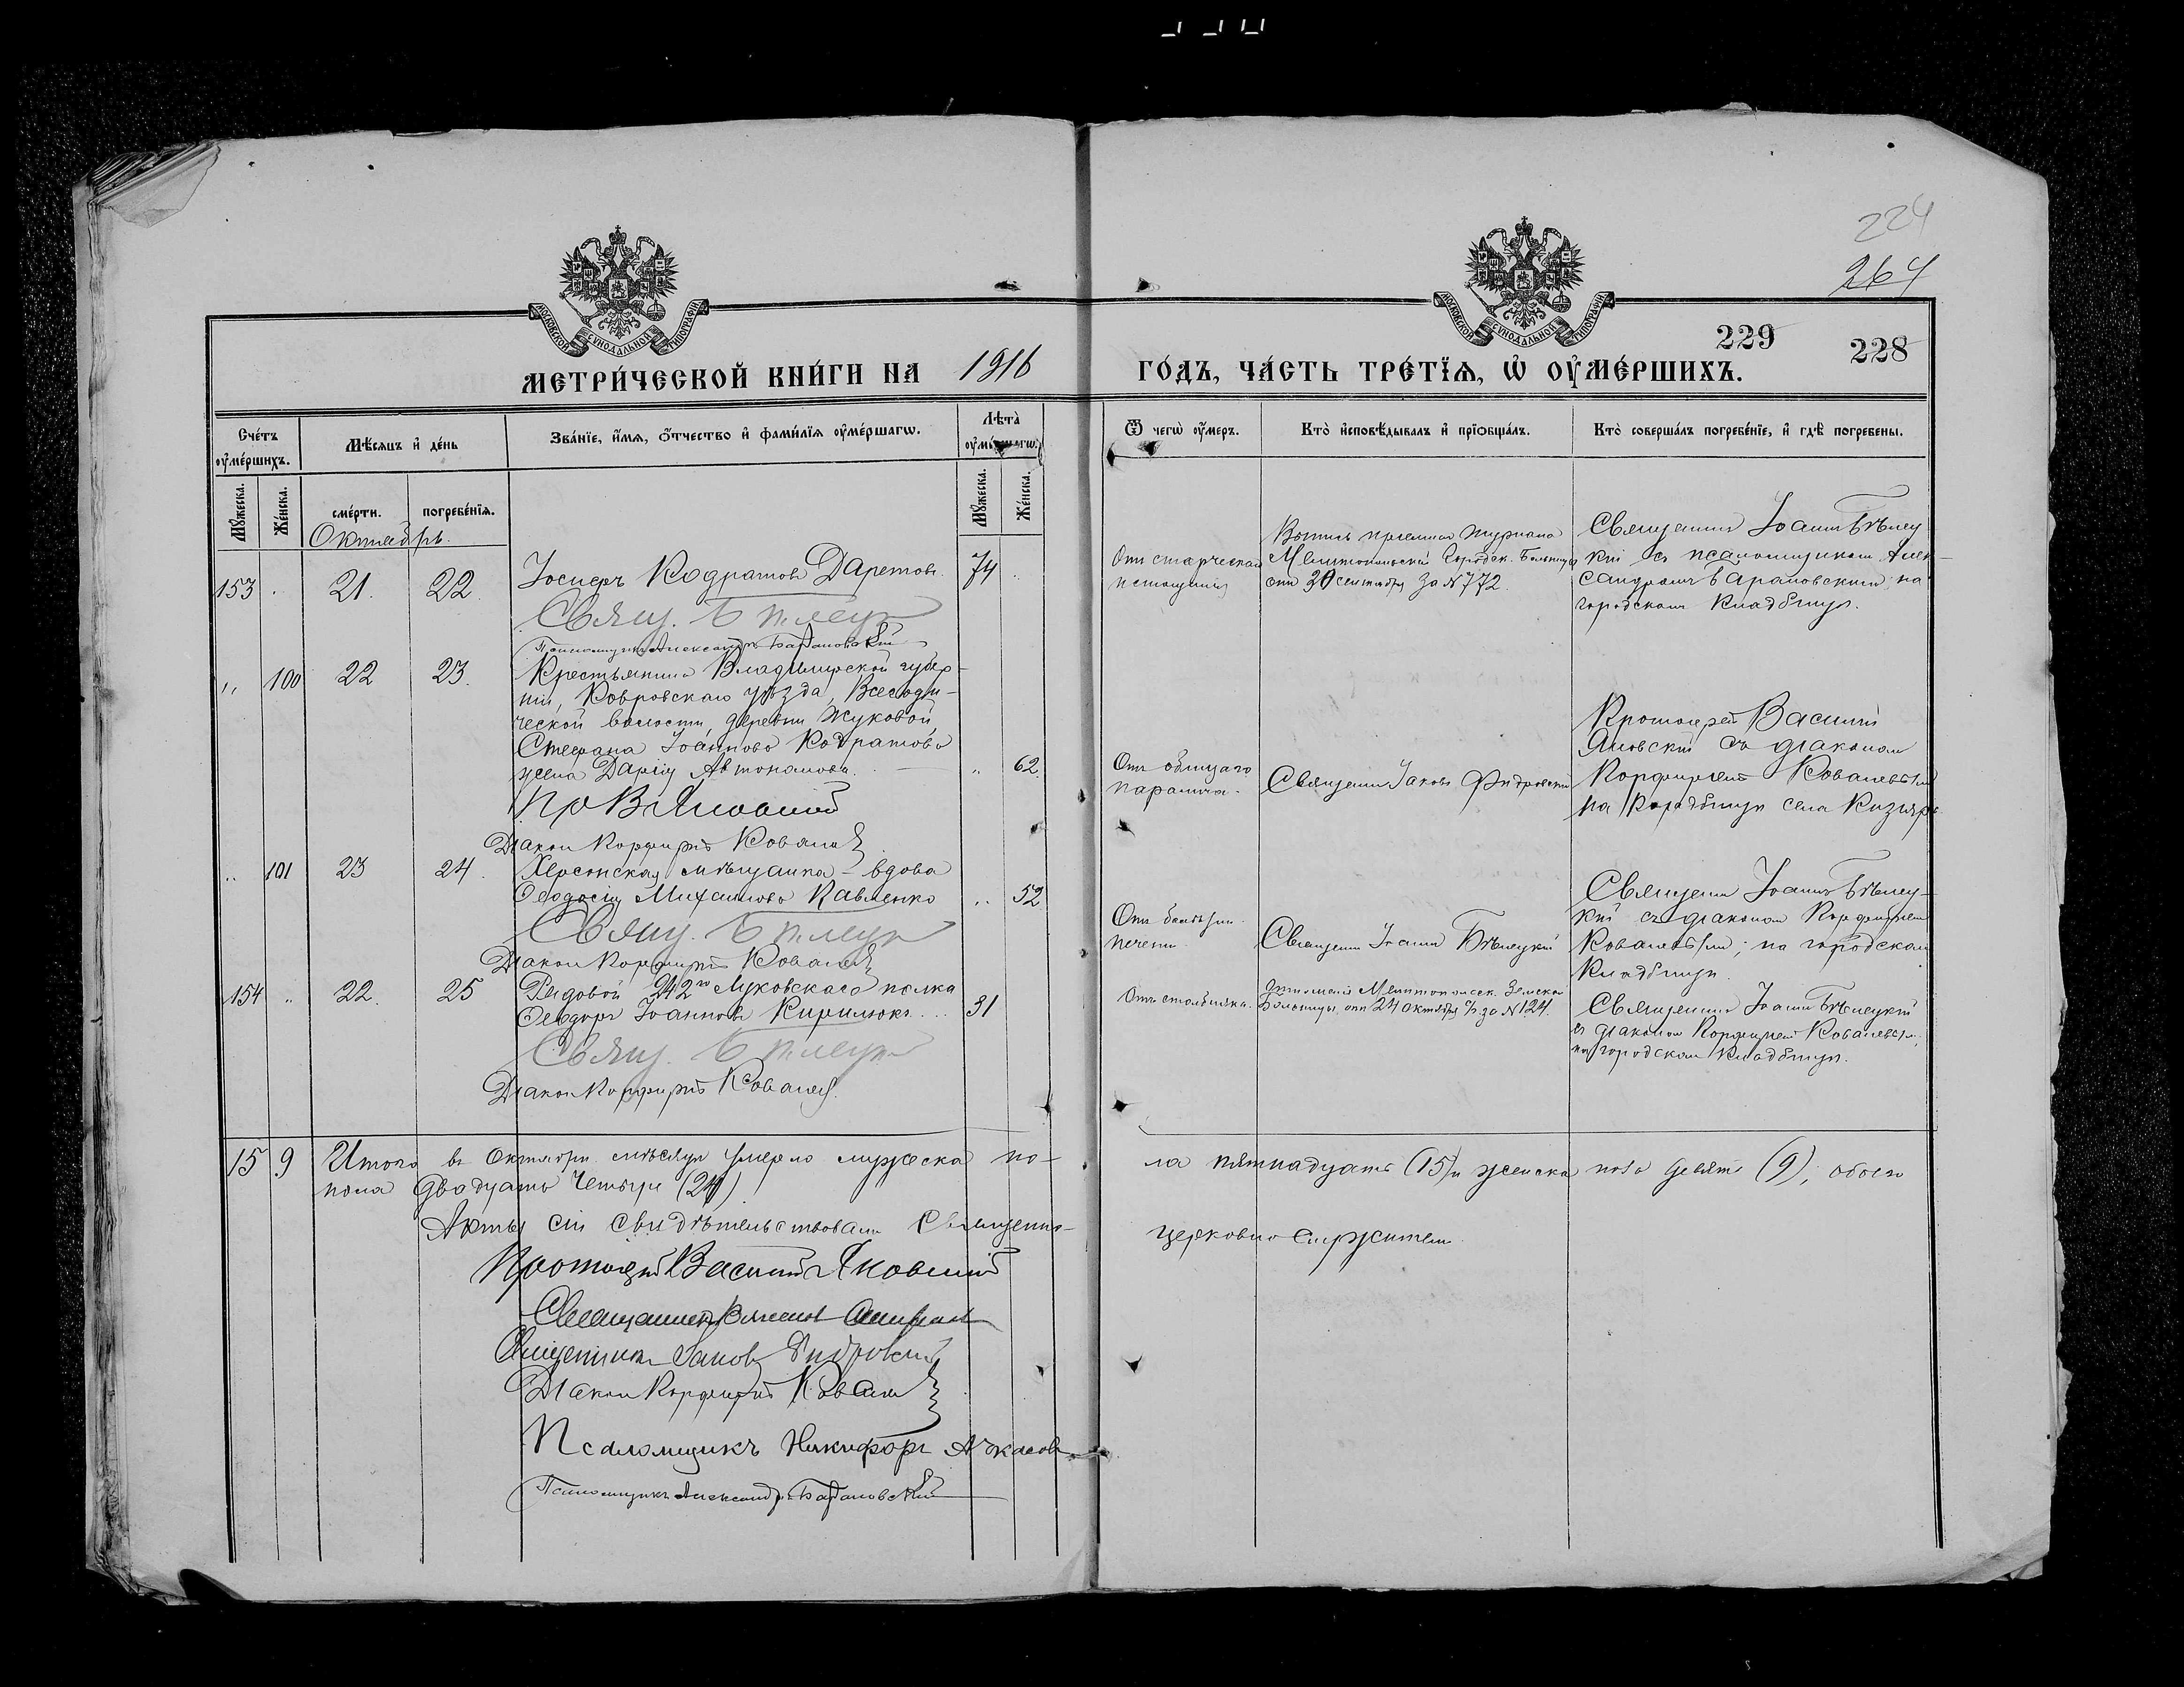 224
264
229
228
МОСКОВСКОЙ СУНОДАЛЬНОЙ ТИПОГРАФІИ
МОСКОВСКОЙ СУНОДАЛЬНОЙ ТИПОГРАФІИ
МЕТРИ́ЧЕСКОЙ КНИ́ГИ НА 1916 ГО́ДЪ, ЧА́СТЬ ТРЕ́ТЇѦ, Ѡ҆ ОУ҆МЕ́РШИХЪ.
Счетъ оумершихъ.
Мѣсяцъ и день
Званіе, имя, отчество и фамилія оумершагѡ.
Лѣта оумершагѡ.
Ѿ чегѡ оумеръ.
Кто исповѣдывалъ и пріобщалъ.
Кто совершалъ погребеніе, и гдѣ погребены.
Мужеска.
Женска.
смерти.
погребенія.
Мужеска.
Женска.
Октябрь.
153 21. 22.
Іосифъ Кодратовъ Даретовъ. 74
Свящ. Бѣлецк
Псаломщикъ Александръ Барановскій
Отъ старческаго
истощенія
Выпись пріемнаго журнала
Мелитопольской Городск. Больницы
отъ 20 сентября за № 772.
Священникъ Іоаннъ Бѣлец-
кій съ псаломщикомъ Алек-
сандромъ Барановскимъ, на
городскомъ кладбищѣ.
" 100 22 23.
Крестьянина Владимірской губер-
ніи, Ковровскаго уѣзда, Всегоди-
ческой волости, деревни Жуковой,
Стефана Іоаннова Кодратова
жена Дарія Автономова. " 62.
Пр В Яновскій
Діаконъ Порфирій Ковалев
Отъ общаго
паралича.
Священникъ Іаковъ Фидровскій
Протоіерей Василій
Яновскій съ діакономъ
Порфиріемъ Ковалевскимъ
на кладбищѣ села Кизіяръ
" 101 23 24.
Херсонская мѣщанка - вдова
Ѳеодосія Михаилова Павленко " 52
Свящ. Бѣлецк
Діаконъ Порфирій Ковалев
Отъ болѣзни
печени
Священникъ Іоаннъ Бѣлецкій
Священникъ Іоаннъ Бѣлец-
кій съ діакономъ Порфиріемъ
Ковалевскимъ; на городскомъ
кладбищѣ.
154 " 22. 25
Рядовой 242го Луковскаго полка
Ѳеодоръ Іоанновъ Кирилюкъ. 31
Свящ. Бѣлецк
Діаконъ Порфирій Ковалев.
Отъ столбняка.
Отношеніе Мелитопольск. Земской
Больницы, отъ 24 октября с/г. за № 124.
Священникъ Іоаннъ Бѣлецкій
съ діакономъ Порфиріемъ Ковалевск.;
на городскомъ кладбищѣ.
15 9 Итого въ Октябрѣ мѣсяцѣ умерло мужеска по-
ла пятнадцать (15) и женска пола девять (9), обоего
пола двадцать четыре (24)
Акты сіи свидѣтельствовали Священно-
церковно-служители
Протоіерей Василій Яновскій
Священникъ
Священникъ Іаковъ Фидровскій
Діаконъ Порфирій Ковалев
Псаломщикъ Никифоръ Ачкасовъ
Псаломщикъ Александръ Барановскій